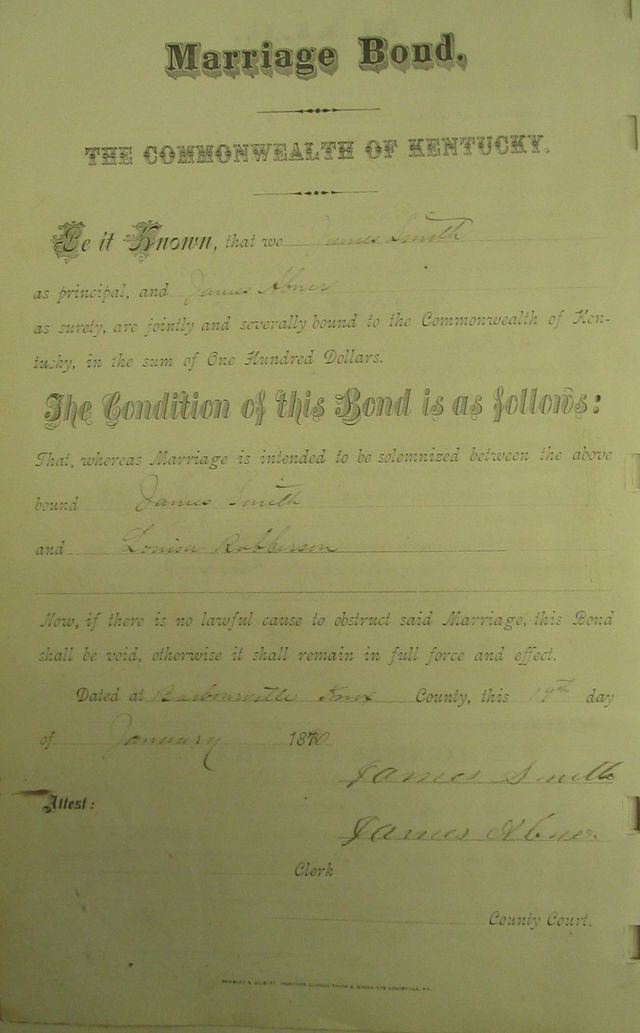 Marriage Bond.
THE COMMONWEALTH OF KENTUCKY.
Be it Known, that we James Smith
as principal, and James Abner
as surety, are jointly and severally bound to the Commonwealth of Ken-
tucky, in the sum of One Hundred Dollars.
The Condition of this Bond is as follows:
That, whereas Marriage is intended to be solemnized between the above
bound James Smith
and Louisa Robberson
Now, if there is no lawful cause to obstruct said Marriage, this Bond
shall be void, otherwise it shall remain in full force and effect.
Dated at Barbourville Knox County, this 19th day
of January 1870
James Smith
Attest:
James Abner
Clerk
County Court.